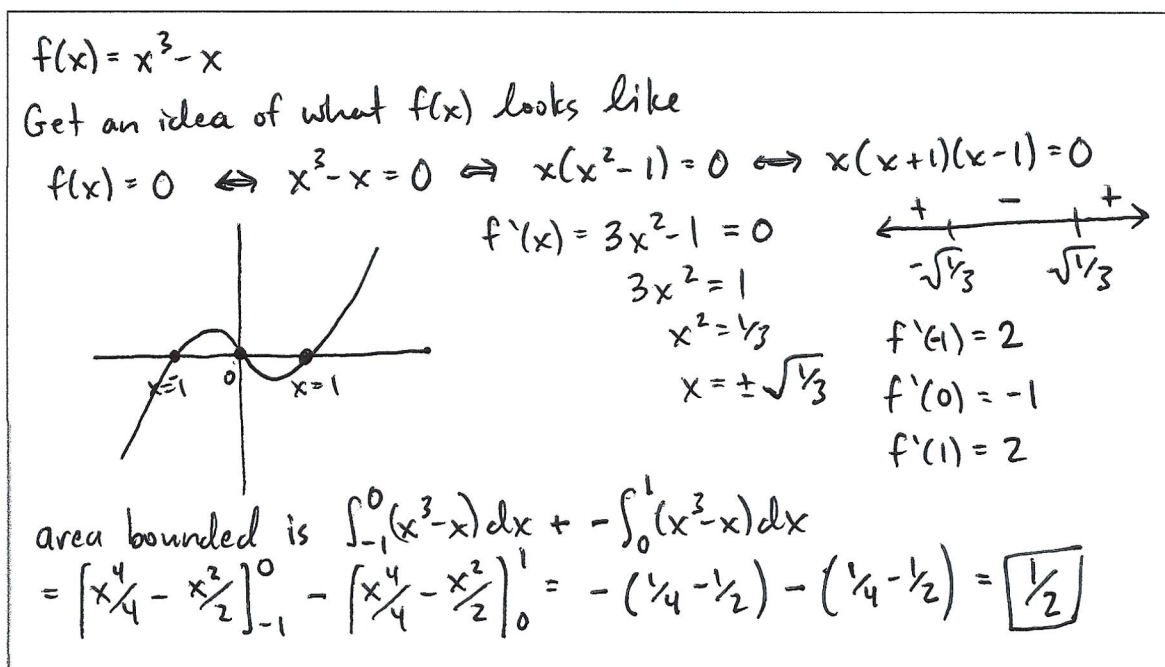 f(x) = x³ - x
Get an idea of what f(x) looks like
f(x) = 0 ⇔ x³ - x = 0 ⇔ x(x² - 1) = 0 ⇔ x(x+1)(x-1) = 0
+ - +
-√1/3 √1/3
f'(x) = 3x² - 1 = 0
3x² = 1
x² = 1/3
x = ±√1/3
f'(-1) = 2
f'(0) = -1
f'(1) = 2
x=-1 0 x=1
area bounded is ∫₋₁⁰(x³-x)dx + -∫₀¹(x³-x)dx
= [x⁴/4 - x²/2]₋₁⁰ - [x⁴/4 - x²/2]₀¹ = -(1/4 - 1/2) - (1/4 - 1/2) = 1/2